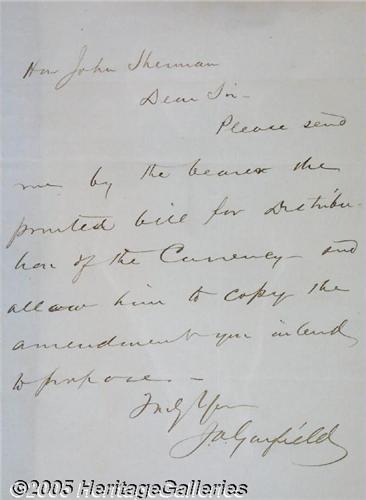 Hon John Sherman
Dear Sir -
Please send
me by the bearer the
printed bill for Distribu-
tion of the Currency - and
allow him to copy the
amendment you intend
to propose. -
Truly Yours
J.A.Garfield
©2005 HeritageGalleries